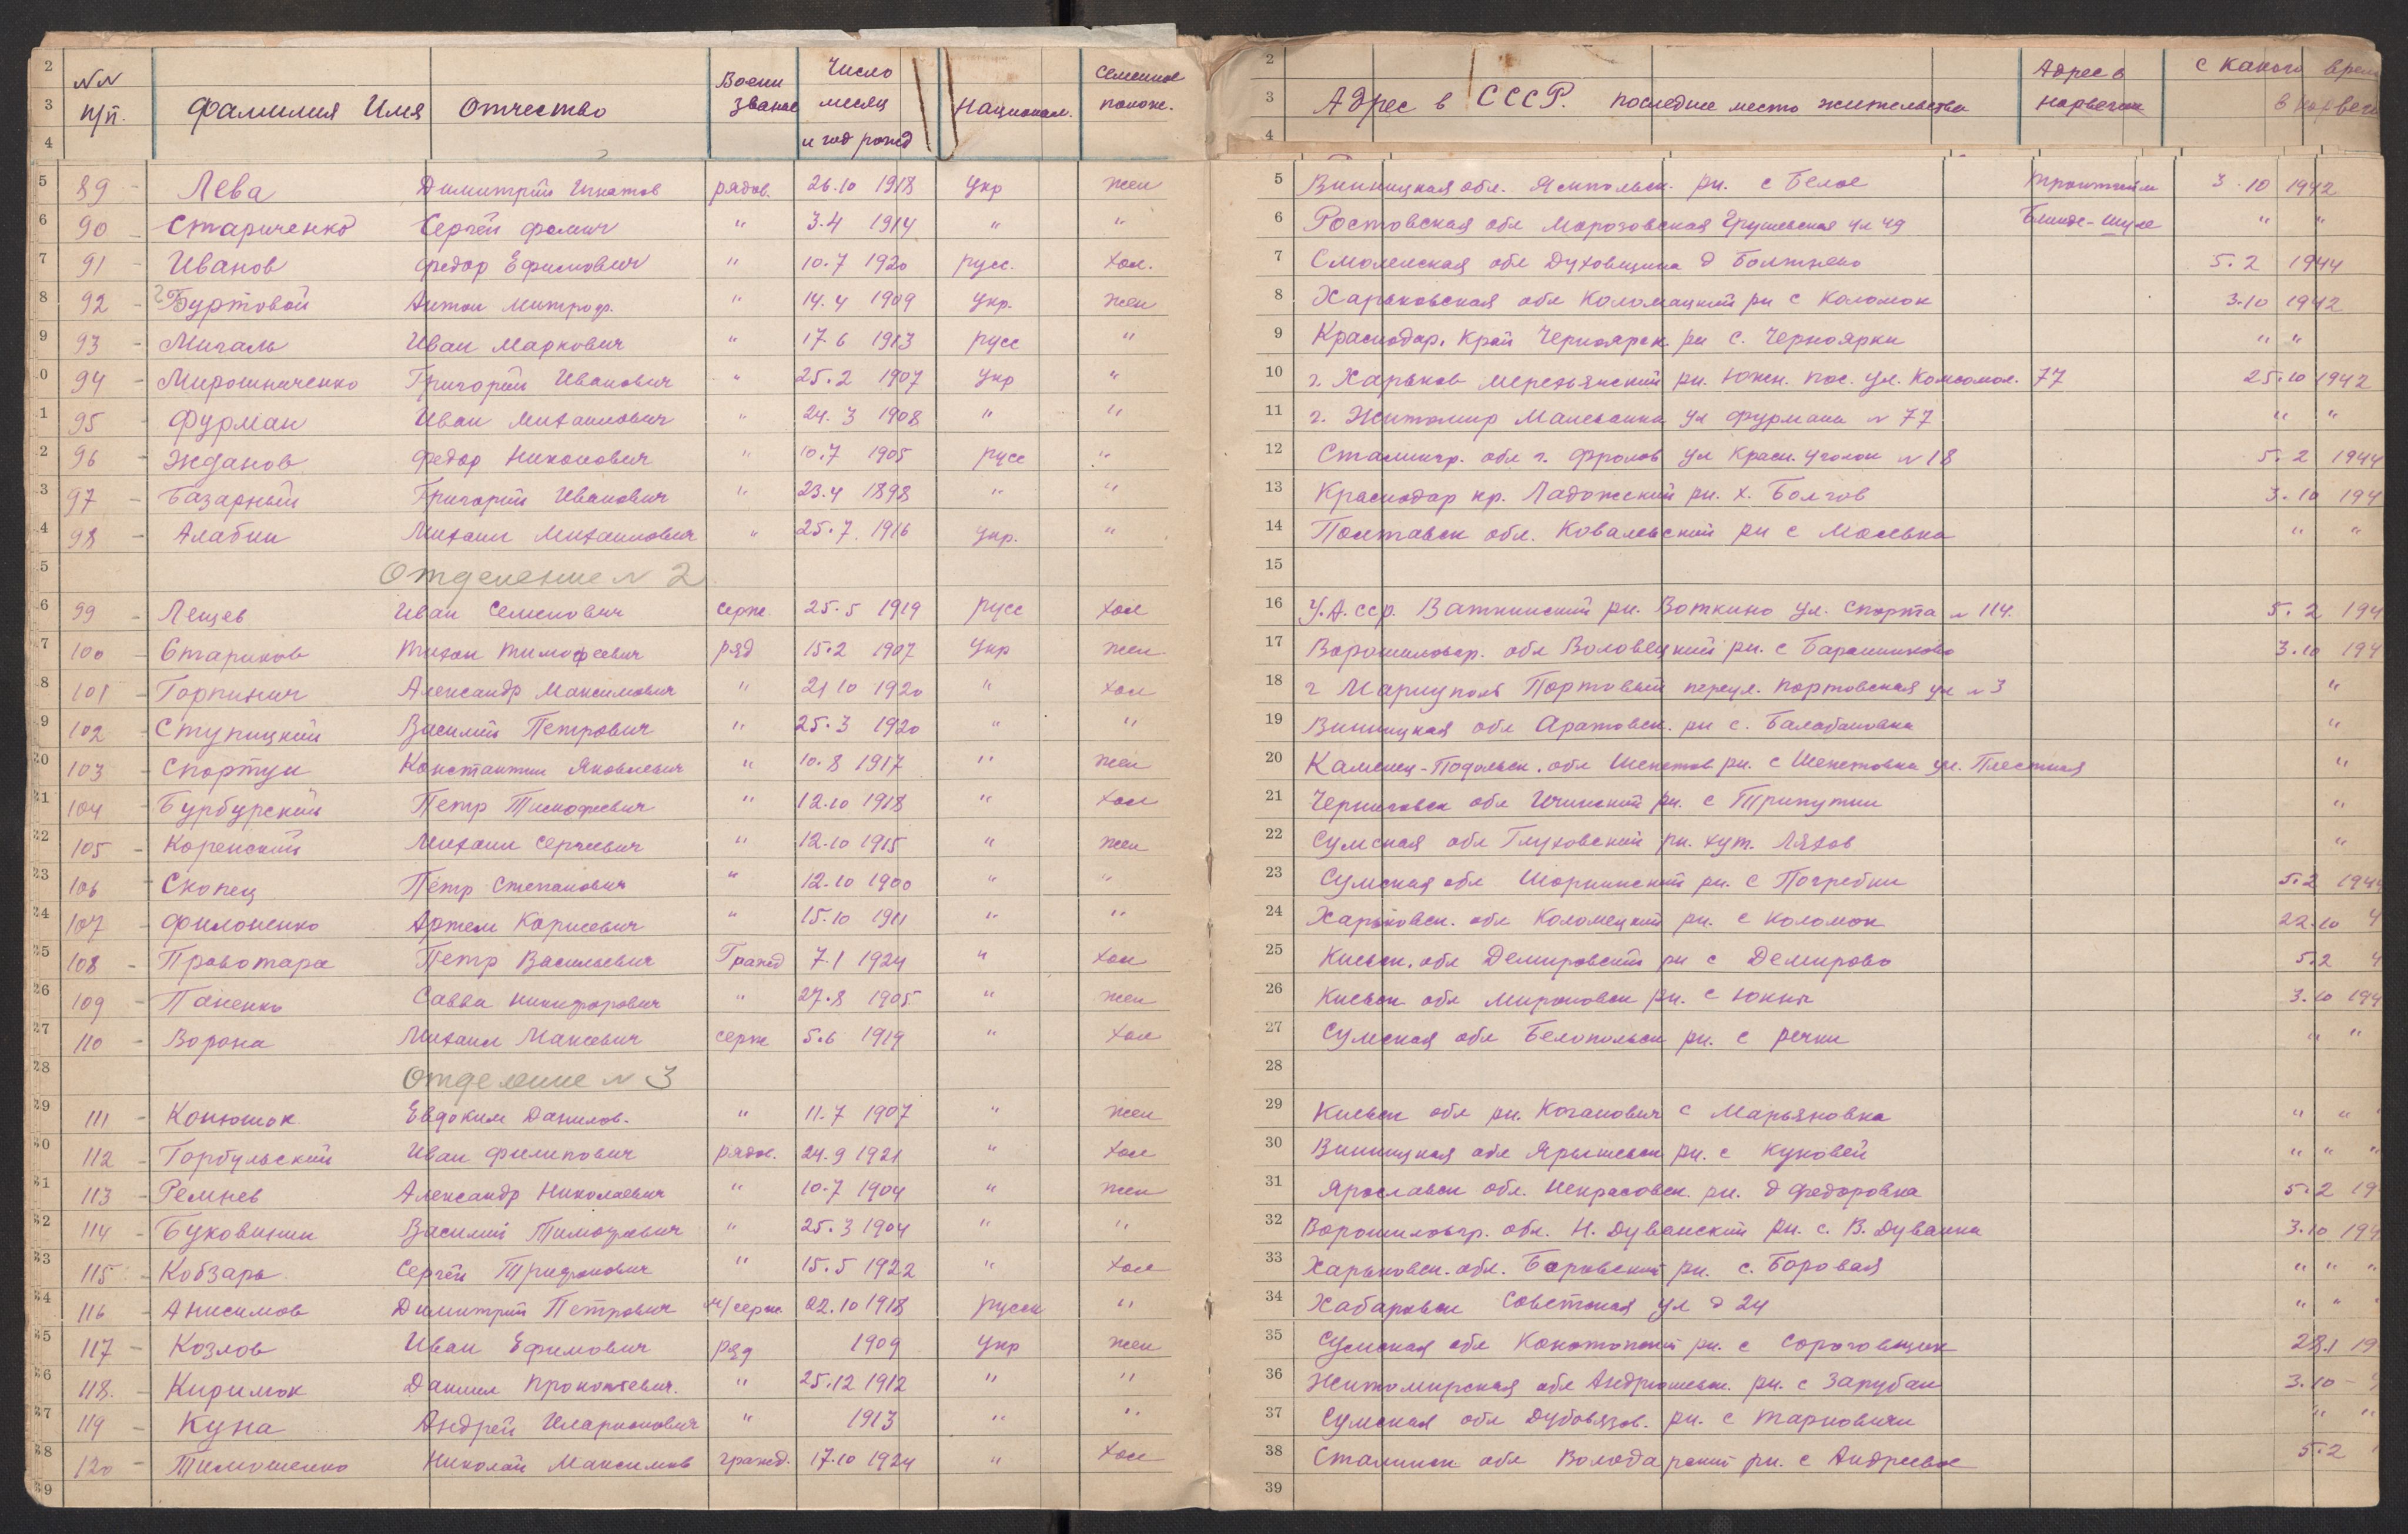 NN п/п. Фамилия Имя Отчество Военн званье Число месяц и год рожд Национал. Семейное полож. Адрес в СССР. последнее место жительства Адрес в норвегии С какого врем в норвеги
5 89 - Лева Димитрий Игнатов рядов. 26.10 1918 Укр жен 5 Винницкая обл. Ямпольск. рн. с Белое Тронтгейм 3.10 1942
6 90 - Стариченко Сергей Фомич " 3.4 1914 " " 6 Ростовская обл Морозовская Грушевская ул 49 " "
7 91 - Иванов Федор Ефимович " 10.7 1920 русс. хол. 7 Смоленская обл Духовщина д 5.2 1944
8 92 - Буртовой Антон Митроф. " 14.4 1909 Укр. жен 8 Харьковская обл Коломацкий рн с Коломок 3.10 1942
9 93 - Мигаль Иван Маркович " 17.6 1913 русс " 9 Краснодар. Край Черноярск. рн с. Черноярки " "
0 94 - Мирошниченко Григорий Иванович " 25.2 1907 Укр " 10 г. Харьков рн. Южн. пос. ул. Комсомол. 77 25.10 1942
1 95 - Фурман Иван Михаилович " 24.3 1908 " " 11 г. Житомир Малеванка ул Фурмана N 77 " "
2 96 - Жданов Федор Никонович " 10.7 1905 русс " 12 Сталингр. обл г. Фролов ул Красн. Уголок N 18 5.2 1944
3 97 - Базарный Григорий Иванович " 23.4 1898 " " 13 Краснодар кр. Ладожский рн. х. Болгов 3.10 194
4 98 - Алабин Михаил Михаилович " 25.7. 1916 Укр. " 14 Полтавск обл. Ковалевский рн с " "
5 Отделение N 2. 15
6 99 - Лещев Иван Семенович серж. 25.5 1919 русс хол 16 У.А.сср. Ваткинский рн. Воткино ул. Спорта N 114. 5.2 194
7 100 - Стариков Тихон Тимофеевич ряд 15.2 1907 Укр жен 17 Ворошиловгр. обл рн. с Бараниково 3.10 194
8 101 - Горпинич Александр Максимович " 21 10 1920 " хол 18 г Мариуполь Портовый переул. портовская ул N 3 "
9 102 - Ступицкий Василий Петрович " 25.3 1920 " " 19 Винницкая обл рн с. Балабановка "
20 103 - Спортун Константин Яковлевич " 10.8 1917 " жен 20 Каменец-Подольск. обл Шепетов рн. с Шепетовка ул. "
21 104 - Бурбурский Петр Тимофеевич " 12.10 1918 " хол 21 Черниговск обл Ичнский рн. с "
22 105 - Коренский Михаил Сергеевич " 12.10 1915 " жен 22 Сумская обл Глуховский рн. хут. Ляхов "
23 106 - Скопец Петр Степанович " 12.10 1900 " " 23 Сумская обл рн. с Погребки 5.2 194
24 107 - Филоненко Артем " 15.10 1911 " " 24 Харьковск. обл Коломецкий рн. с Коломок 22.10 4
25 108 - Провотара Петр Васильевич Гражд 7.1 1924 " хол 25 Киевск. обл Демировский рн с Демирово 5.2 4
26 109 - Паненко Савва Никифорович " 27.8 1905 " жен 26 Киевск обл Мироновск рн. с 3.10 194
27 110 - Ворона Михаил серж 5.6 1919 " хол 27 Сумская обл Белопольск рн. с речки " "
28 Отделение N 3 28
29 111 - Конюшок Евдоким Данилов. " 11.7 1907 " жен 29 Киевск обл рн. Коганович с Марьяновка " "
30 112 - Горбульский Иван Филипович рядов. 24.9 1921 " хол 30 Винницкая обл Ярышевск рн. с Куковей " " "
31 113 - Ремнев Александр Николаевич " 10.7 1904 " жен 31 Ярославск обл. Некрасовск. рн. д Федоровка 5.2 19
32 114 - Буковинин Василий " 25.3 1904 " " 32 Ворошиловгр. обл. Н. Дуванский рн. с. В. Дуванка 3.10 194
33 115 - Кобзарь Сергей Трифонович " 15.5 1922 " хол 33 Харьковск. обл. Боровский рн. с. Боровая " " "
34 116 - Анисимов Димитрий Петрович М/серж 22.10 1918 русск " 34 Хабаровск Советская ул д 24 " " "
35 117 - Козлов Иван Ефимович ряд 1909 Укр жен 35 Сумская обл Конотопский рн. с 28.1 19
36 118. - Киримок Даниил Прокопевич. " 25.12 1912 " " 36 Житомирская обл Андрюшевск. рн. с Зарубан 3.10 -
37 119 - Куна Андрей Иларионович " 1913 " " 37 Сумская обл Дубовязов. рн. с " "
38 120 - Тимошенко Николай Максимов гражд. 17.10 1924 " хол 38 Сталинск обл Володарский рн. с Андреевое 5.2
39 39